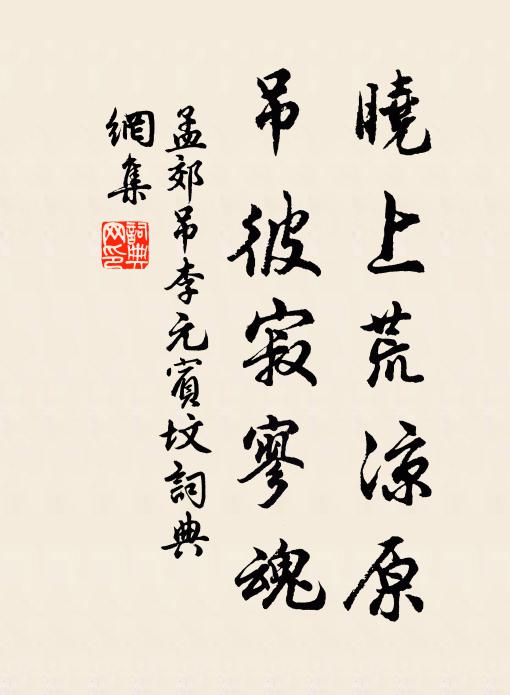 曉上荒涼原
吊彼寂寥魂
孟郊吊李元賓墳詞典
網集
詞典
网印